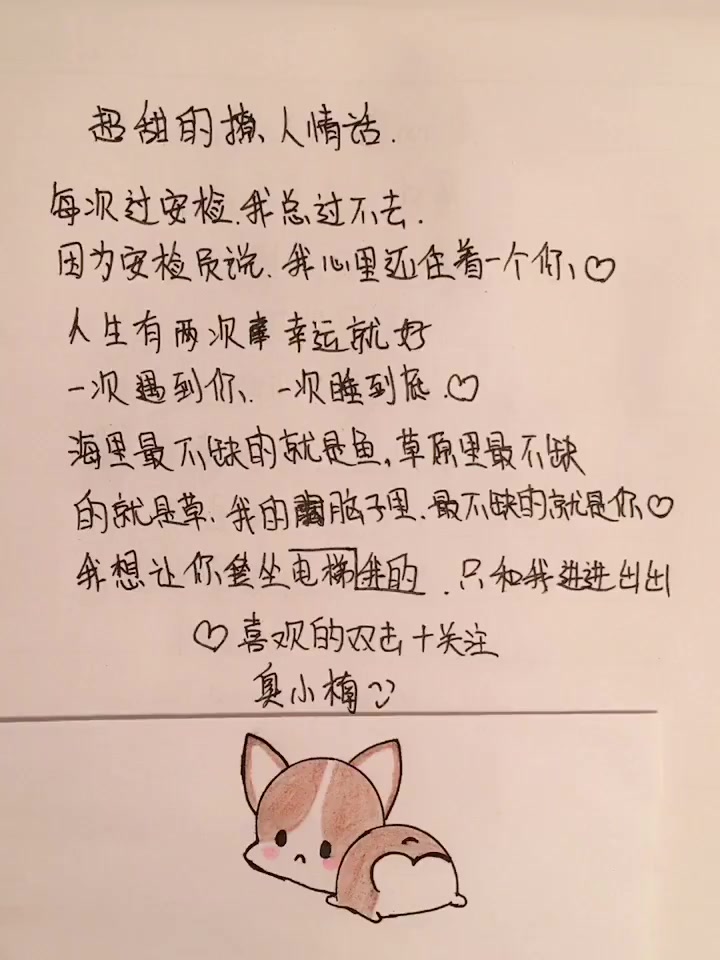 超甜的撩人情话.
每次过安检.我总过不去.
因为安检员说.我心里还住着一个你、♡
人生有两次幸运就好
一次遇到你.一次睡到底.♡
海里最不缺的就是鱼,草原里最不缺
的就是草.我的脑子里.最不缺的就是你♡
我想让你坐电梯我的.只和我进进出出
♡喜欢的双击+关注
臭小楠